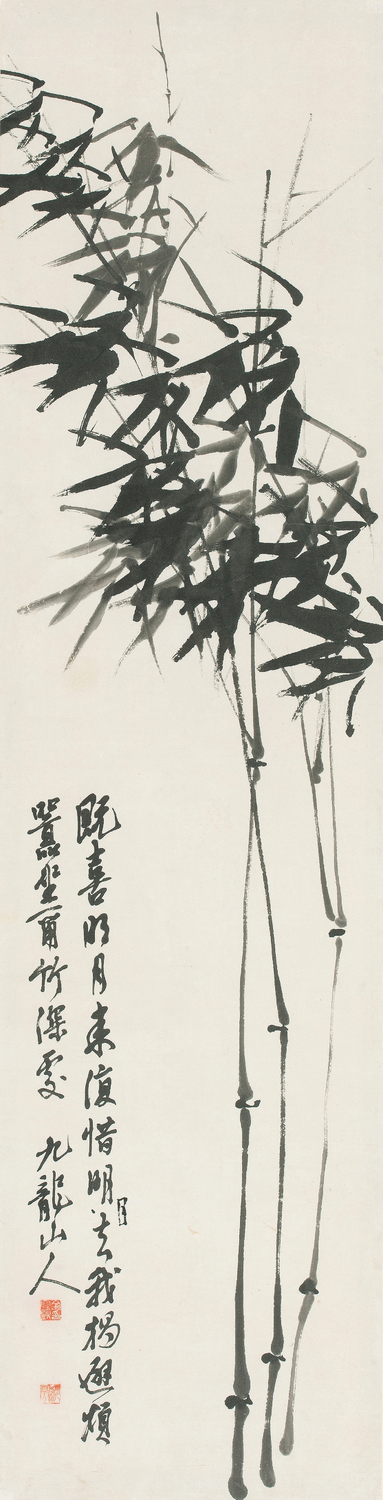 既喜明月来復惜明月去我獨避煩
囂坐看竹深處 九龍山人